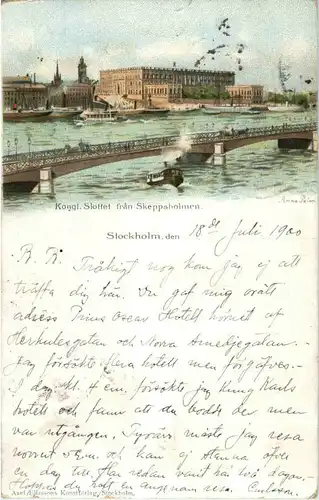 Kongl. Slottet från Skeppsholmen.
Anna Palm
Stockholm, den 18de Juli 1900
B. B. Tråkigt nog kom jag ej att
träffa dig här. Du gaf mig orätt
adress Prins Oscars Hotell hörnet af
Herkulesgatan och Norra Smedjegatan.
Jag försökte flera hotell men förgäfves.
I dag kl. 4 em. försökte jag Kung Karls
hotell och fann att du bodde der men
var utgången. Tyvärr måste jag resa
norrut 5 em. och kan ej stanna öfver
en dag till. Har redan varit här två dagar.
Hoppas du haft en angenäm resa.
Axel Eliassons Konstförlag, Stockholm.